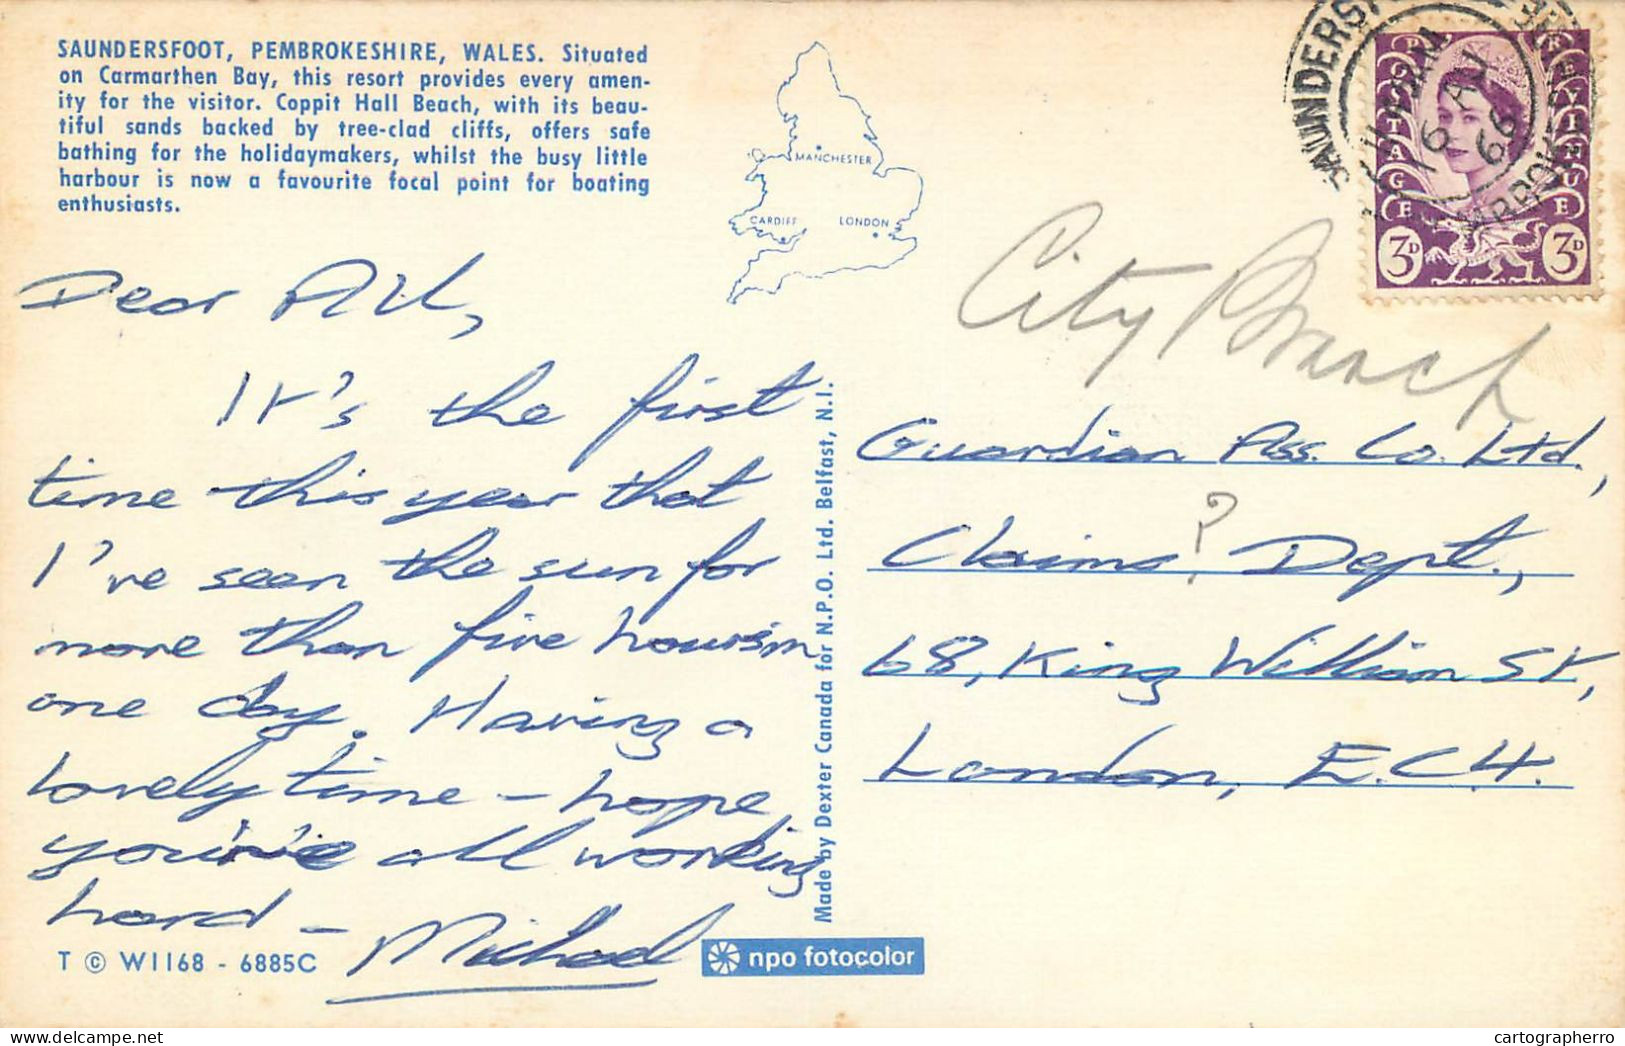 SAUNDERSFOOT, PEMBROKESHIRE, WALES. Situated
on Carmarthen Bay, this resort provides every amen-
ity for the visitor. Coppit Hall Beach, with its beau-
tiful sands backed by tree-clad cliffs, offers safe
bathing for the holidaymakers, whilst the busy little
harbour is now a favourite focal point for boating
enthusiasts.
MANCHESTER
CARDIFF
LONDON
Dear All,
It's the first
time this year that
I've seen the sun for
more than five hours in
one day. Having a
lovely time - hope
you're all working
hard -
Michael
T © W1168 - 6885C
npo fotocolor
Made by Dexter Canada for N.P.O. Ltd. Belfast, N.I.
SAUNDERSF
66
POSTAGE
REVENUE
3D
3D
City Branch
Guardian Ass. Co. Ltd.,
?
Claims Dept.,
68, King William St,
London, E.C.4.
cartographerro